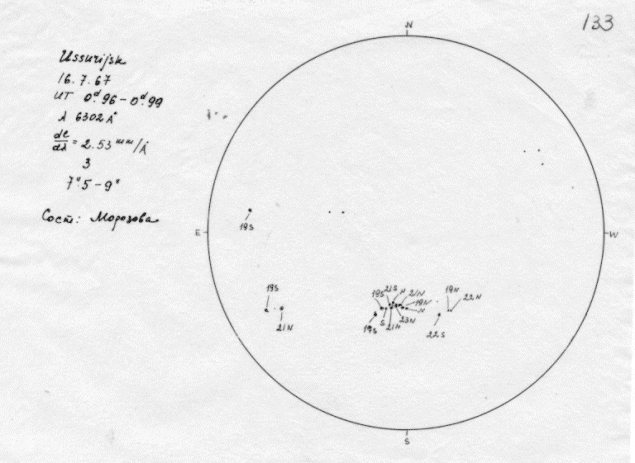 133
N
Ussurijsk
16.7.67
UT 0ᵈ.96-0ᵈ.99
λ 6302 Å
dl/dλ = 2.53 mm/Å
3
7"5-9"
Сост: Морозова
E
W
19S
19S
21N
19S
21S
N
21N
19N
N
19S
S
21N
23N
19N
22N
22S
S